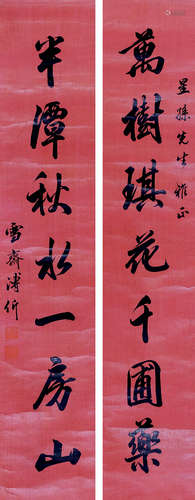 萬樹琪花千圃藥
星孫先生雅正
半潭秋水一房山
雪齋溥伒